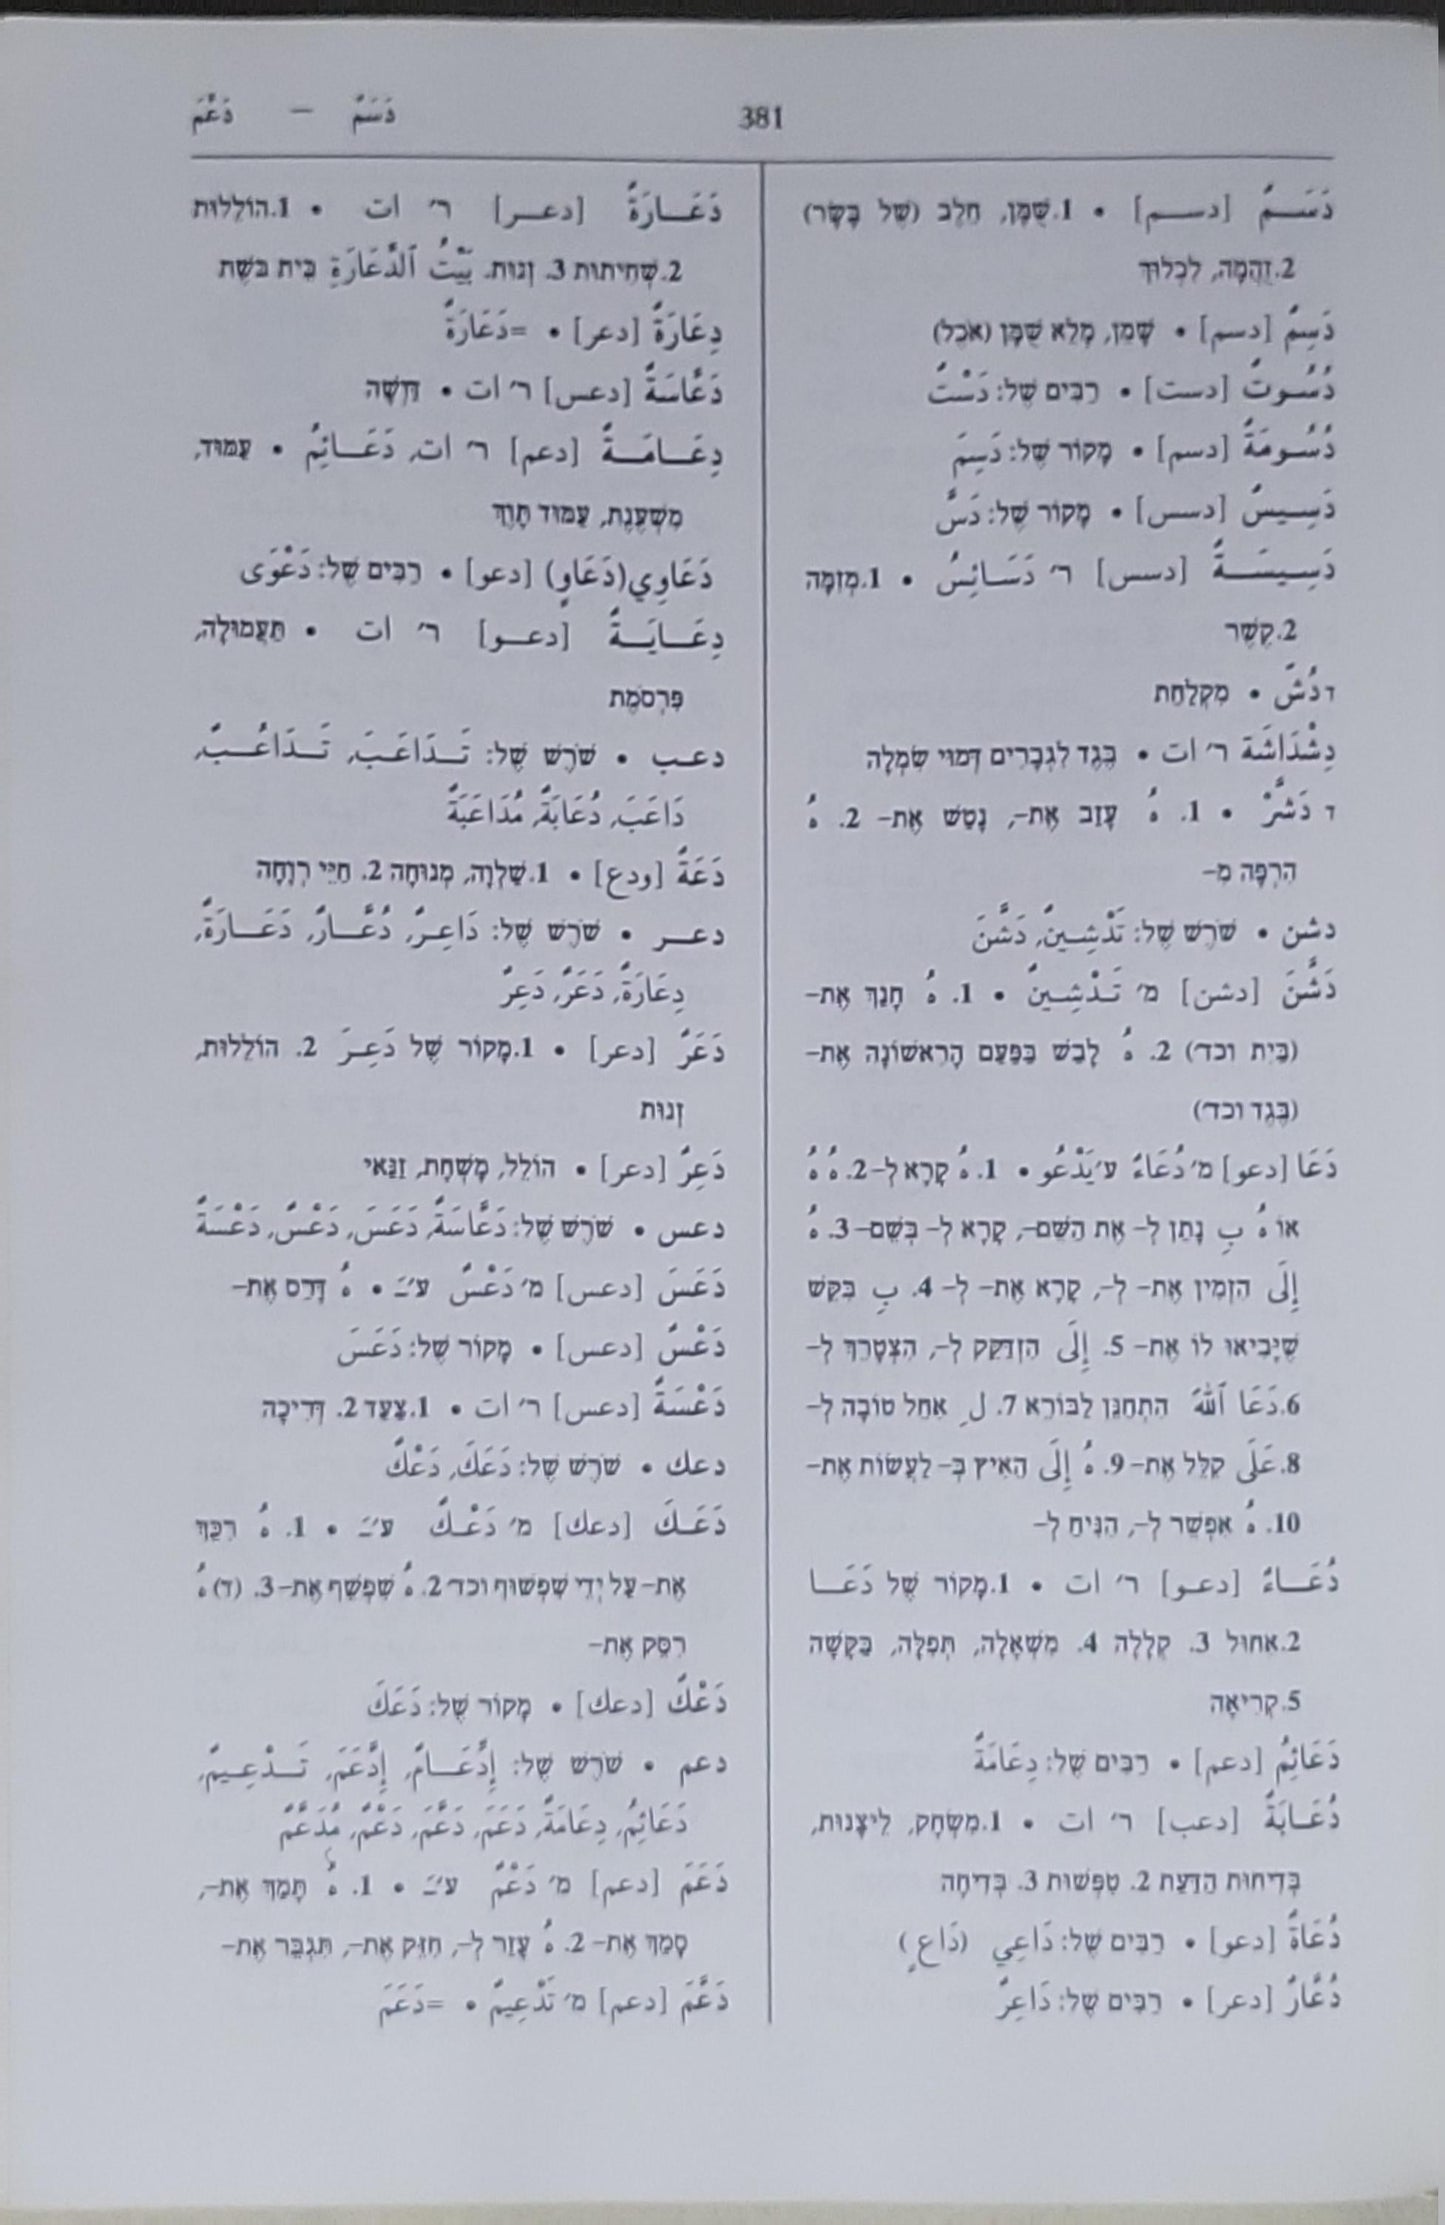 دَسَمَ — دَعَّمَ
381
دَسَـــمٌ [دســـم] • 1.שֻׁמָּן, חֵלֶב (שֶׁל בָּשָׂר)
2.זֻהֲמָה, לִכְלוּךְ
دَسِمٌ [دسم] • שָׁמֵן, מָלֵא שֻׁמָּן (אֹכֶל)
دُسُـوتٌ [دست] • רַבִּים שֶׁל: دَسْتٌ
دُسُـومَةٌ [دسم] • מָקוֹר שֶׁל: دَسِمَ
دَسِـيسٌ [دسس] • מָקוֹר שֶׁל: دَسَّ
دَسِـيسَـــةٌ [دسس] ר׳ دَسَـائِسُ • 1.מְזִמָּה
2.קֶשֶׁר
ד دُشٌّ • מִקְלַחַת
دِشْدَاشَة ר׳ ات • בֶּגֶד לִגְבָרִים דְּמוּי שִׂמְלָה
ד دَشَّرْ • 1. هُ עָזַב אֶת–, נָטַשׁ אֶת– 2. هُ
הִרְפָּה מִ–
دشن • שֹׁרֶשׁ שֶׁל: تَدْشِـينٌ, دَشَّنَ
دَشَّنَ [دشن] מ׳ تَـدْشِـينٌ • 1. هُ חָנַךְ אֶת–
(בַּיִת וכד׳) 2. هُ לָבַשׁ בַּפַּעַם הָרִאשׁוֹנָה אֶת–
(בֶּגֶד וכד׳)
دَعَا [دعو] מ׳ دُعَاءٌ ע׳ يَدْعُو • 1. هُ קָרָא לְ–2. هُ هُ
אוֹ هُ بِ נָתַן לְ– אֶת הַשֵּׁם–, קָרָא לְ– בְּשֵׁם– 3. هُ
إِلَى הִזְמִין אֶת– לְ–, קָרָא אֶת– לְ– 4. بِ בִּקֵּשׁ
שֶׁיָּבִיאוּ לוֹ אֶת– 5. إِلَى הִזְדַּקֵּק לְ–, הִצְטָרֵךְ לְ–
6.دَعَا ٱللّٰهَ הִתְחַנֵּן לַבּוֹרֵא 7. لِ אִחֵל טוֹבָה לְ–
8.عَلَى קִלֵּל אֶת– 9. هُ إِلَى הֵאִיץ בְּ– לַעֲשׂוֹת אֶת–
10. هُ אִפְשֵׁר לְ–, הִנִּיחַ לְ–
دُعَـــاءٌ [دعـو] ר׳ ات • 1.מָקוֹר שֶׁל دَعَـــا
2.אִחוּל 3. קְלָלָה 4. מִשְׁאָלָה, תְּפִלָּה, בַּקָּשָׁה
5.קְרִיאָה
دَعَائِمُ [دعم] • רַבִּים שֶׁל: دِعَامَةٌ
دُعَـابَةٌ [دعب] ר׳ ات • 1.מִשְׂחָק, לֵיצָנוּת,
בְּדִיחוּת הַדַּעַת 2. טִפְּשׁוּת 3. בְּדִיחָה
دُعَاةٌ [دعو] • רַבִּים שֶׁל: دَاعِي (دَاعٍ)
دُعَّارٌ [دعر] • רַבִּים שֶׁל: دَاعِرٌ
دَعَـــارَةٌ [دعـــر] ר׳ ات • 1.הוֹלֵלוּת
2.שְׁחִיתוּת 3. זְנוּת. بَيْتُ ٱلدَّعَارَةِ בֵּית בֹּשֶׁת
دِعَارَةٌ [دعر] • =دَعَارَةٌ
دَعَّاسَةٌ [دعس] ר׳ ات • דַּוְשָׁה
دِعَـــامَـــةٌ [دعم] ר׳ ات, دَعَـــائِمُ • עַמּוּד,
מִשְׁעֶנֶת, עַמּוּד תָּוֶךְ
دَعَاوِي(دَعَاوٍ) [دعو] • רַבִּים שֶׁל: دَعْوَى
دِعَـــايَـــةٌ [دعـــو] ר׳ ات • תַּעֲמוּלָה,
פִּרְסֹמֶת
دعـب • שֹׁרֶשׁ שֶׁל: تَـــدَاعَـبَ, تَـــدَاعُـــبٌ,
دَاعَبَ, دُعَابَةٌ, مُدَاعَبَةٌ
دَعَةٌ [ودع] • 1.שַׁלְוָה, מְנוּחָה 2. חַיֵּי רְוָחָה
دعـــر • שֹׁרֶשׁ שֶׁל: دَاعِـرٌ, دُعَّـــارٌ, دَعَـــارَةٌ,
دِعَارَةٌ, دَعَرٌ, دَعِرٌ
دَعَرٌ [دعر] • 1.מָקוֹר שֶׁל دَعِـرَ 2. הוֹלֵלוּת,
זְנוּת
دَعِرٌ [دعر] • הוֹלֵל, מֻשְׁחָת, זַנַּאי
دعس • שֹׁרֶשׁ שֶׁל: دَعَّاسَةٌ, دَعَسَ, دَعْسٌ, دَعْسَةٌ
دَعَسَ [دعس] מ׳ دَعْسٌ ע׳ـَ • هُ דָּרַס אֶת–
دَعْسٌ [دعس] • מָקוֹר שֶׁל: دَعَسَ
دَعْسَةٌ [دعس] ר׳ ات • 1.צַעַד 2. דְּרִיכָה
دعك • שֹׁרֶשׁ שֶׁל: دَعَكَ, دَعْكٌ
دَعَـكَ [دعك] מ׳ دَعْـكٌ ע׳ـَ • 1. هُ רִכֵּךְ
אֶת– עַל יְדֵי שִׁפְשׁוּף וכד׳ 2. هُ שִׁפְשֵׁף אֶת–3. (ד) هُ
רִסֵּק אֶת–
دَعْكٌ [دعك] • מָקוֹר שֶׁל: دَعَكَ
دعم • שֹׁרֶשׁ שֶׁל: إِدِّعَـــامٌ, إِدَّعَمَ, تَـــدْعِـيمٌ,
دَعَائِمُ, دِعَامَةٌ, دَعَمَ, دَعَّمَ, دَعْمٌ, مُدَعَّمٌ
دَعَمَ [دعم] מ׳ دَعْمٌ ע׳ـَ • 1. هُ תָּמַךְ אֶת–,
סָמַךְ אֶת– 2. هُ עָזַר לְ–, חִזֵּק אֶת–, תִּגְבֵּר אֶת–
دَعَّمَ [دعم] מ׳ تَدْعِيمٌ • =دَعَمَ